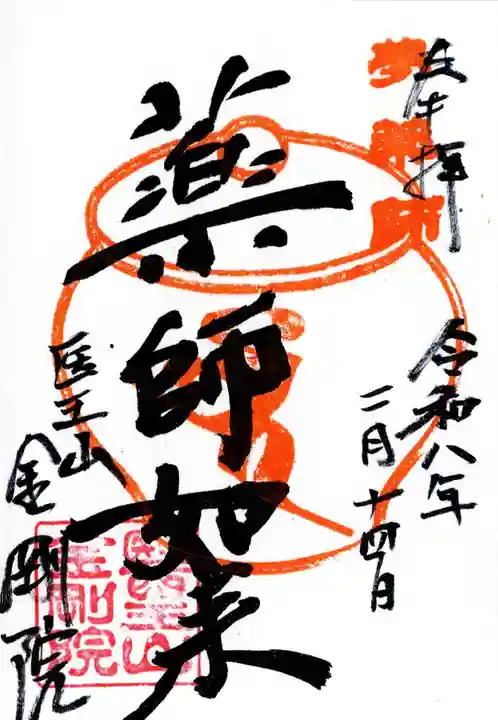 令和八年
二月十四日
薬師如来
医王山
金剛院
醫王山
金剛院